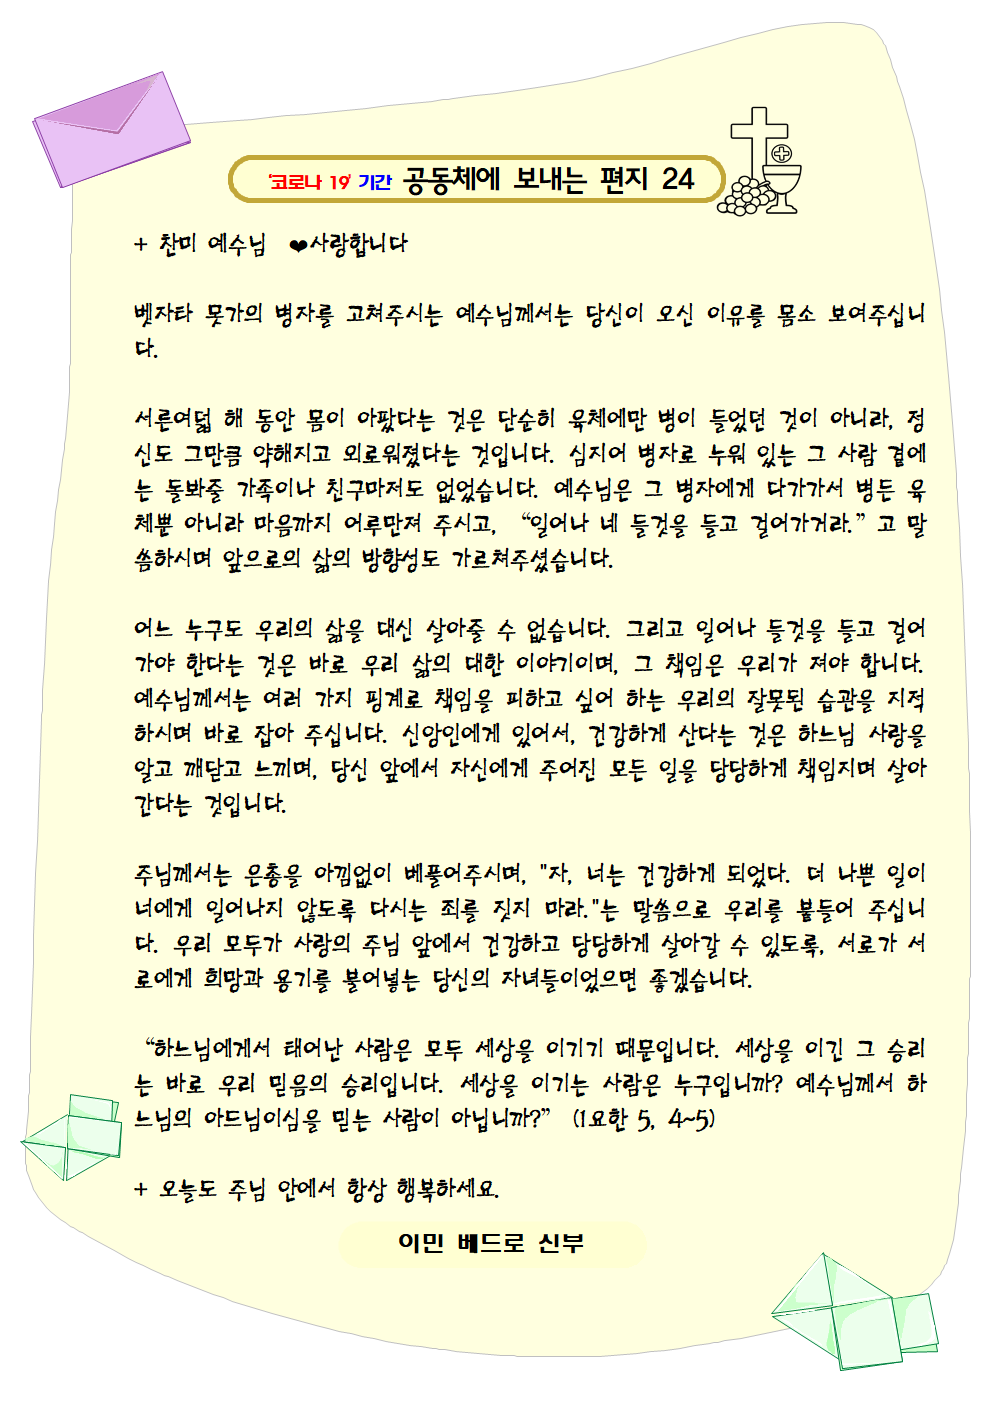 '코로나 19' 기간 공동체에 보내는 편지 24
+ 찬미 예수님 ❤사랑합니다
벳자타 못가의 병자를 고쳐주시는 예수님께서는 당신이 오신 이유를 몸소 보여주십니
다.
서른여덟 해 동안 몸이 아팠다는 것은 단순히 육체에만 병이 들었던 것이 아니라, 정
신도 그만큼 약해지고 외로워졌다는 것입니다. 심지어 병자로 누워 있는 그 사람 곁에
는 돌봐줄 가족이나 친구마저도 없었습니다. 예수님은 그 병자에게 다가가서 병든 육
체뿐 아니라 마음까지 어루만져 주시고, “일어나 네 들것을 들고 걸어가거라.” 고 말
씀하시며 앞으로의 삶의 방향성도 가르쳐주셨습니다.
어느 누구도 우리의 삶을 대신 살아줄 수 없습니다. 그리고 일어나 들것을 들고 걸어
가야 한다는 것은 바로 우리 삶의 대한 이야기이며, 그 책임은 우리가 져야 합니다.
예수님께서는 여러 가지 핑계로 책임을 피하고 싶어 하는 우리의 잘못된 습관을 지적
하시며 바로 잡아 주십니다. 신앙인에게 있어서, 건강하게 산다는 것은 하느님 사랑을
알고 깨닫고 느끼며, 당신 앞에서 자신에게 주어진 모든 일을 당당하게 책임지며 살아
간다는 것입니다.
주님께서는 은총을 아낌없이 베풀어주시며, "자, 너는 건강하게 되었다. 더 나쁜 일이
너에게 일어나지 않도록 다시는 죄를 짓지 마라."는 말씀으로 우리를 붙들어 주십니
다. 우리 모두가 사랑의 주님 앞에서 건강하고 당당하게 살아갈 수 있도록, 서로가 서
로에게 희망과 용기를 불어넣는 당신의 자녀들이었으면 좋겠습니다.
“하느님에게서 태어난 사람은 모두 세상을 이기기 때문입니다. 세상을 이긴 그 승리
는 바로 우리 믿음의 승리입니다. 세상을 이기는 사람은 누구입니까? 예수님께서 하
느님의 아드님이심을 믿는 사람이 아닙니까?” (1요한 5, 4~5)
+ 오늘도 주님 안에서 항상 행복하세요.
이민 베드로 신부